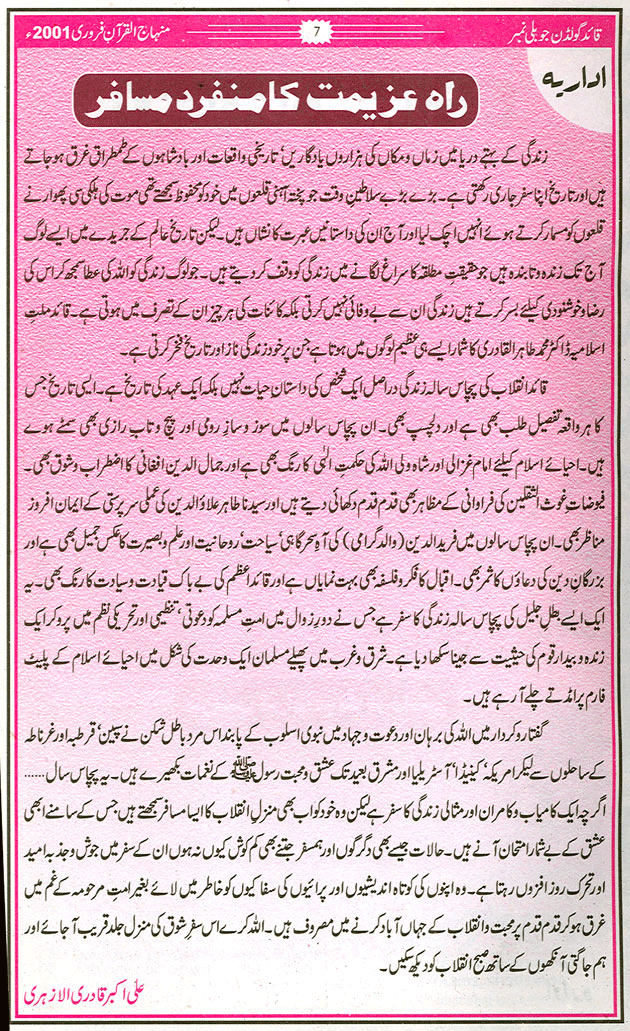 قائد گولڈن جوبلی نمبر
7
منہاج القرآن فروری 2001ء
اداریہ
راہ عزیمت کا منفرد مسافر
زندگی کے بہتے دریا میں زمان و مکاں کی ہزاروں یادگاریں‘ تاریخی واقعات اور بادشاہوں کے طمطراق غرق ہو جاتے
ہیں اور تاریخ اپنا سفر جاری رکھتی ہے۔ بڑے بڑے سلاطین وقت جو پختہ آہنی قلعوں میں خود کو محفوظ سمجھتے تھے موت کی ہلکی سی پھوار نے
قلعوں کو مسمار کرتے ہوئے انہیں اچک لیا اور آج ان کی داستانیں عبرت کا نشاں ہیں۔ لیکن تاریخ عالم کے جریدے میں ایسے لوگ
آج تک زندہ و تابندہ ہیں جو حقیقتِ مطلقہ کا سراغ لگانے میں زندگی کو وقف کر دیتے ہیں۔ جو لوگ زندگی کو اللہ کی عطا سمجھ کر اس کی
رضا و خوشنودی کیلئے بسر کرتے ہیں زندگی ان سے بے وفائی نہیں کرتی بلکہ کائنات کی ہر چیز ان کے تصرف میں ہوتی ہے۔ قائد ملتِ
اسلامیہ ڈاکٹر محمد طاہر القادری کا شمار ایسے ہی عظیم لوگوں میں ہوتا ہے جن پر خود زندگی ناز اور تاریخ فخر کرتی ہے۔
قائد انقلاب کی پچاس سالہ زندگی دراصل ایک شخص کی داستانِ حیات نہیں بلکہ ایک عہد کی تاریخ ہے۔ ایسی تاریخ جس
کا ہر واقعہ تفصیل طلب بھی ہے اور دلچسپ بھی۔ ان پچاس سالوں میں سوز و سازِ رومی اور پیچ و تابِ رازی بھی سمٹے ہوئے
ہیں۔ احیائے اسلام کیلئے امام غزالی اور شاہ ولی اللہ کی حکمتِ الٰہی کا رنگ بھی ہے اور جمال الدین افغانی کا اضطراب و شوق بھی۔
فیوضاتِ غوث الثقلین کی فراوانی کے مظاہر بھی قدم قدم دکھائی دیتے ہیں اور سیدنا طاہر علاؤالدین کی عملی سرپرستی کے ایمان افروز
مناظر بھی۔ ان پچاس سالوں میں فرید الدین (والد گرامی) کی آہِ سحر گاہی‘ سیاحت‘ روحانیت اور علم و بصیرت کا عکسِ جمیل بھی ہے اور
بزرگانِ دین کی دعاؤں کا ثمر بھی۔ اقبال کا فکر و فلسفہ بھی بہت نمایاں ہے اور قائد اعظم کی بے باک قیادت و سیادت کا رنگ بھی۔ یہ
ایک ایسے بطلِ جلیل کی پچاس سالہ زندگی کا سفر ہے جس نے دورِ زوال میں امتِ مسلمہ کو دعوتی‘ تنظیمی اور تحریکی نظم میں پرو کر ایک
زندہ و بیدار قوم کی حیثیت سے جینا سکھا دیا ہے۔ شرق و غرب میں پھیلے مسلمان ایک وحدت کی شکل میں احیائے اسلام کے پلیٹ
فارم پر امڈتے چلے آ رہے ہیں۔
گفتار و کردار میں اللہ کی برہان اور دعوت و جہاد میں نبوی اسلوب کے پابند اس مرد باطل شکن نے سپین‘ قرطبہ اور غرناطہ
کے ساحلوں سے لیکر امریکہ‘ کینیڈا‘ آسٹریلیا اور مشرق بعید تک عشق و محبت رسول ﷺ کے نغمات بکھیرے ہیں۔ یہ پچاس سال ......
اگرچہ ایک کامیاب و کامران اور مثالی زندگی کا سفر ہے لیکن وہ خود کو اب بھی منزلِ انقلاب کا ایسا مسافر سمجھتے ہیں جس کے سامنے ابھی
عشق کے بے شمار امتحان آنے ہیں۔ حالات جیسے بھی دگرگوں اور ہمسفر جتنے بھی کم کوش کیوں نہ ہوں ان کے سفر میں جوش و جذبہ امید
اور تحرک روز افزوں رہتا ہے۔ وہ اپنوں کی کوتاہ اندیشیوں اور پرائیوں کی سفاکیوں کو خاطر میں لائے بغیر امتِ مرحومہ کے غم میں
غرق ہو کر قدم قدم پر محبت و انقلاب کے جہاں آباد کرنے میں مصروف ہیں۔ اللہ کرے اس سفرِ شوق کی منزل جلد قریب آ جائے اور
ہم جاگتی آنکھوں کے ساتھ صبح انقلاب کو دیکھ سکیں۔
علی اکبر قادری الازہری